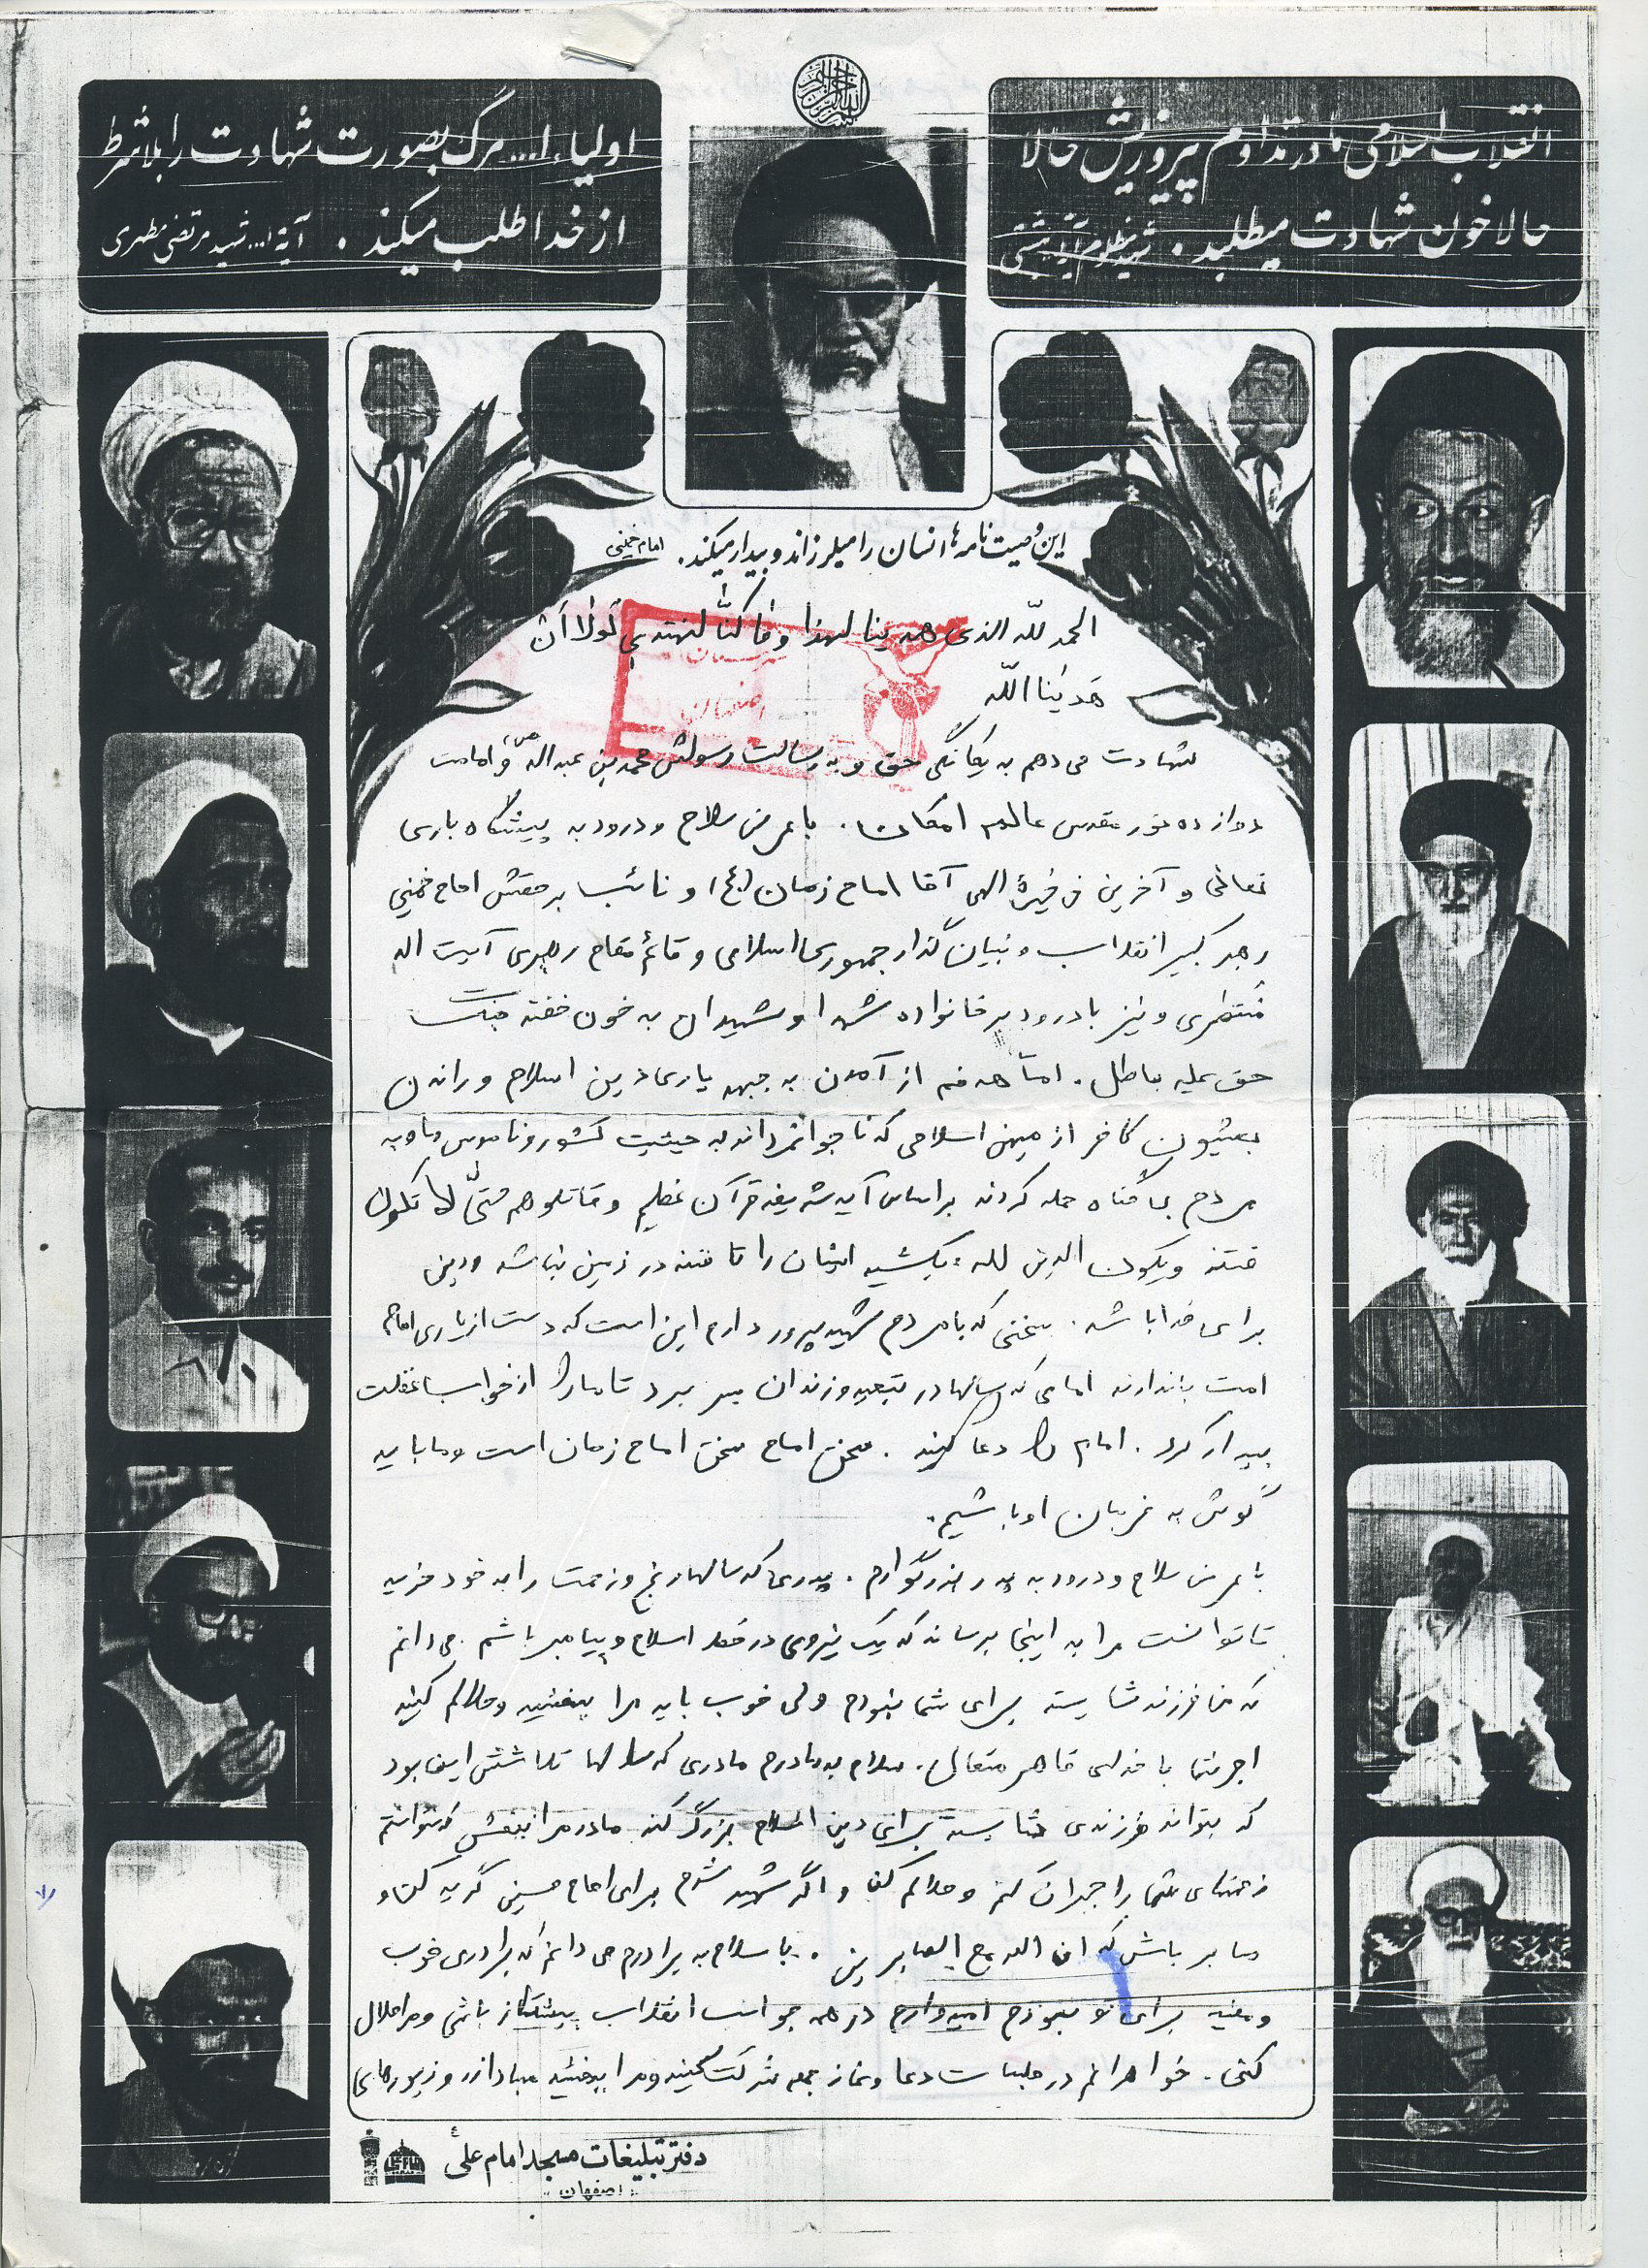 انقلاب اسلامی ما در تداوم پیروزیش حالا
حالا خون شهادت میطلبد. شهید مظلوم آیة... بهشتی
اولیاء ا... مرگ بصورت شهادت را بلاشرط
از خدا طلب میکند. آیة ا... شهید مرتضی مطهری
این وصیت نامه ها انسان را میلرزاند و بیدار میکند. امام خمینی
الحمد للّه الذی هدینا لهذا و ما کنّا لنهتدی لولا ان
هدینا اللّه
شهادت می دهم به یگانگی حق و به رسالت رسولش محمد بن عبداله (ص) و امامت
دوازده نور مقدس عالم امکان. با عرض سلام و درود به پیشگاه باری
تعالی و آخرین ذخیرهٔ الهی آقا امام زمان (عج) و نائب برحقش امام خمینی
رهبر کبیر انقلاب و بنیان گذار جمهوری اسلامی و قائم مقام رهبری آیت اله
منتظری و نیز با درود بر خانواده شهدا و شهیدان به خون خفته جنگ
حق علیه باطل. امّا هدفم از آمدن به جبهه یاری دین اسلام و راندن
بعثیون کافر از میهن اسلامی که ناجوانمردانه به حیثیت کشور و ناموس ما و به
مردم بی گناه حمله کردند بر اساس آیه شریفه قرآن عظیم و قاتلوهم حتّی لا تکون
فتنه و یکون الدین لله، بکشید ایشان را تا فتنه در زمین نباشد و دین
برای خدا باشد. سخنی که با مردم شهید پرور دارم این است که دست از یاری امام
امت برندارند امامی که سالها در تبعید و زندان بسر برد تا ما را از خواب غفلت
بیدار کرد. امام را دعا کنید. سخن امام سخن امام زمان است و ما باید
گوش به فرمان او باشیم.
با عرض سلام و درود به پدر بزرگوارم. پدری که سالها رنج و زحمت را به خود خرید
تا توانست مرا به اینجا برساند که یک نیروی در خط اسلام و پیامبر باشم. می دانم
که من فرزند شایسته برای شما نبودم ولی خوب باید مرا ببخشید و حلالم کنید
اجر شما با خدای قاهر متعال. سلام به مادرم مادری که سالها تلاشش این بود
که بتواند فرزندی شایسته برای دین اسلام بزرگ کند مادر مرا ببخش که نتوانستم
زحمتهای شما را جبران کنم و حلالم کن و اگر شهید شدم برای امام حسین گریه کن و
صابر باش که ان الله مع الصابرین. با سلام به برادرم می دانم که برادری خوب
و مفید برای تو نبودم امیدوارم در همه جوانب انقلاب پیشتاز باشی و مرا حلال
کنی. خواهرانم در جلسات دعا و نماز جمعه شرکت کنید و مرا ببخشید مبادا زر و زیورهای
دفتر تبلیغات مسجد امام علی
اصفهان